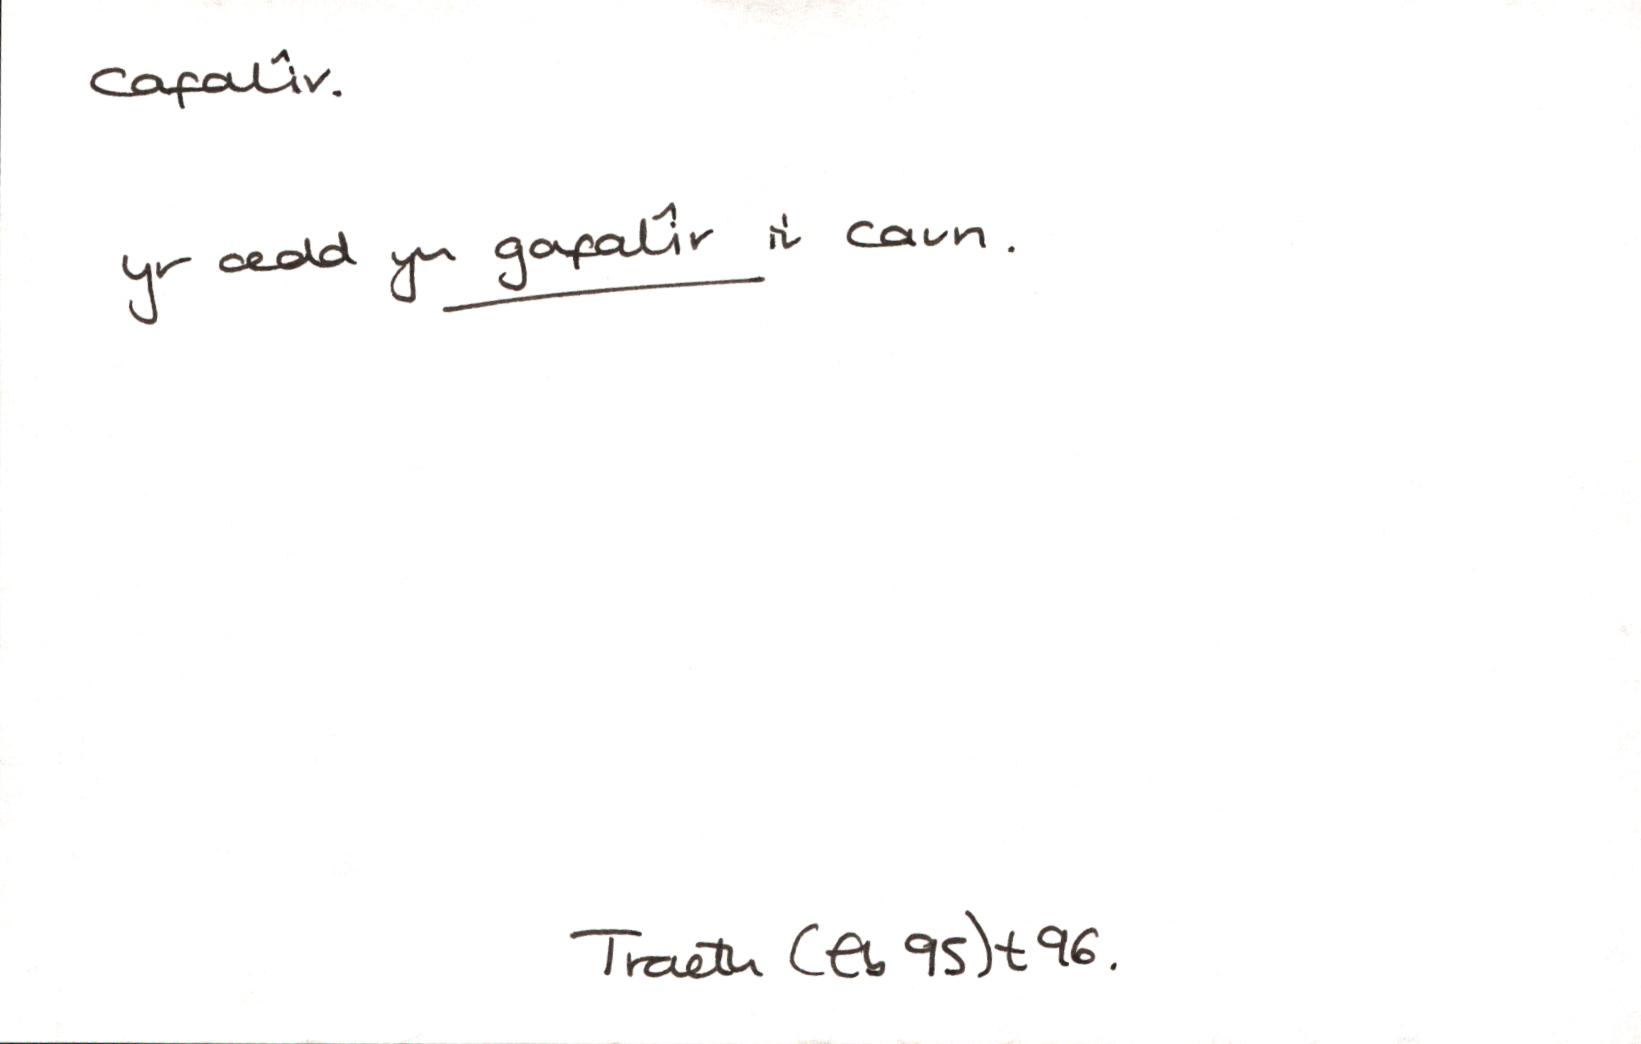 cafalîr.
yr oedd yn gafalîr i'r cawn.
Traeth (Eb 95) t 96.